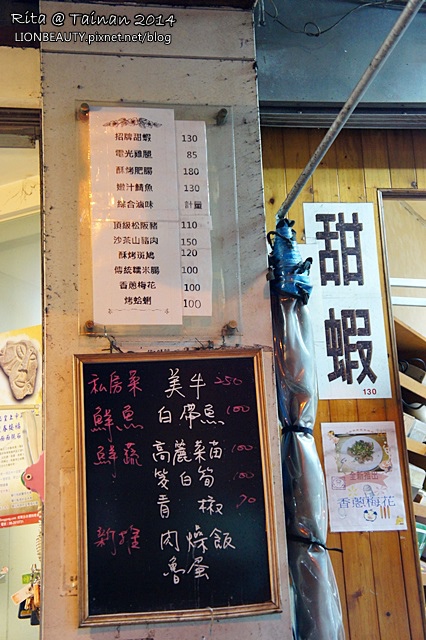 Rita @ Tainan 2014
LIONBEAUTY.pixnet.net/blog
招牌甜蝦 130
電光雞腿 85
酥烤肥腸 180
嫩汁鯖魚 130
綜合滷味 計量
頂級松阪豬 110
沙茶山豬肉 150
酥烤斑鳩 120
傳統糯米腸 100
香蔥梅花 100
烤蛤蜊 100
私房菜 美牛 250
鮮魚 白帶魚 100
鮮蔬 高麗菜苗 100
筊白筍 100
青椒 70
新推 肉燥飯
魯蛋
甜蝦
130
全新推出
香蔥梅花